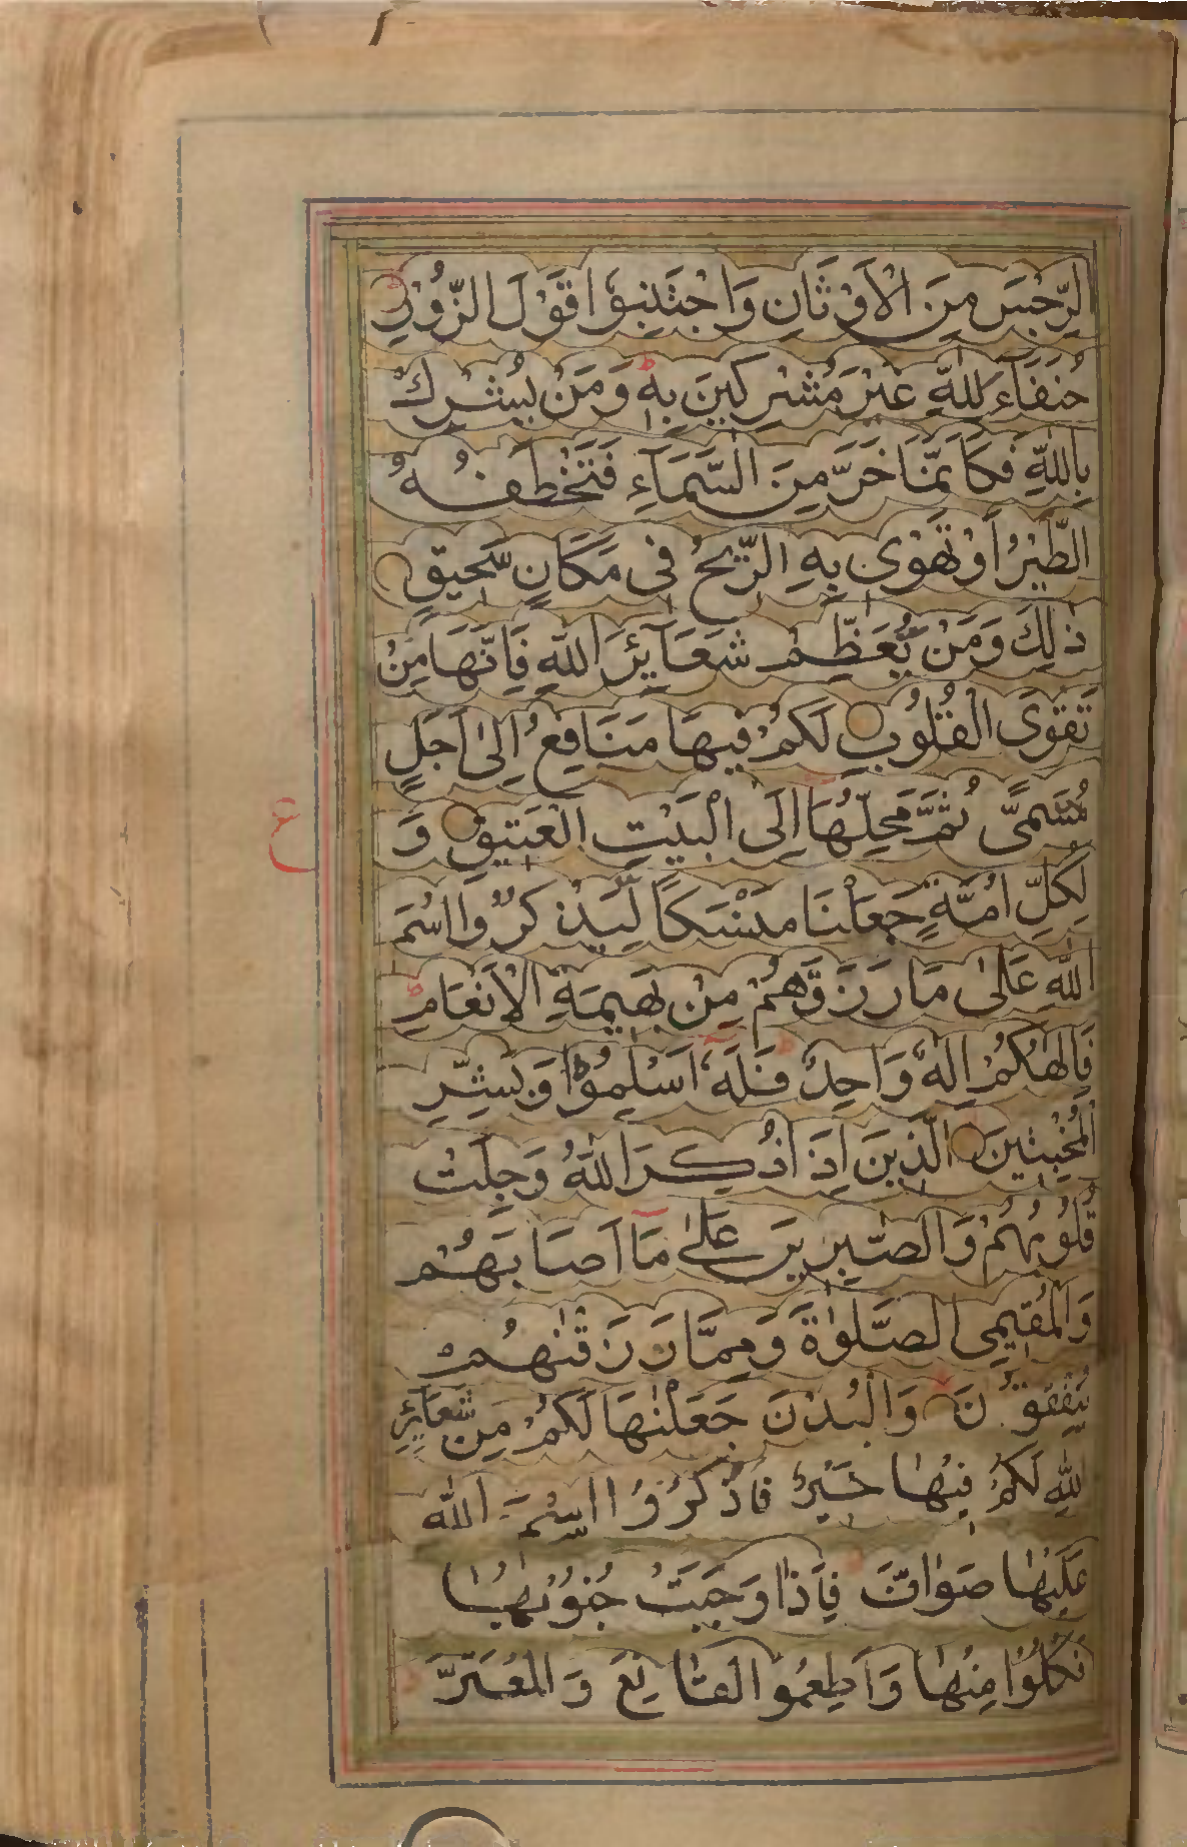 الرِّجْسَ مِنَ الْاَوْثَانِ وَاجْتَنِبُوْا قَوْلَ الزُّوْرِ
حُنَفَآءَ لِلّٰهِ غَيْرَ مُشْرِكِيْنَ بِهٖ وَمَنْ يُّشْرِكْ
بِاللّٰهِ فَكَاَنَّمَا خَرَّ مِنَ السَّمَآءِ فَتَخْطَفُهُ
الطَّيْرُ اَوْ تَهْوِىْ بِهِ الرِّيْحُ فِىْ مَكَانٍ سَحِيْقٍ
ذٰلِكَ وَمَنْ يُّعَظِّمْ شَعَآئِرَ اللّٰهِ فَاِنَّهَا مِنْ
تَقْوَى الْقُلُوْبِ لَكُمْ فِيْهَا مَنَافِعُ اِلٰى اَجَلٍ
مُّسَمًّى ثُمَّ مَحِلُّهَا اِلَى الْبَيْتِ الْعَتِيْقِ وَ
لِكُلِّ اُمَّةٍ جَعَلْنَا مَنْسَكًا لِّيَذْكُرُوا اسْمَ
اللّٰهِ عَلٰى مَا رَزَقَهُمْ مِنْ بَهِيْمَةِ الْاَنْعَامِ
فَاِلٰهُكُمْ اِلٰهٌ وَّاحِدٌ فَلَهٗ اَسْلِمُوْا وَبَشِّرِ
الْمُخْبِتِيْنَ الَّذِيْنَ اِذَا ذُكِرَ اللّٰهُ وَجِلَتْ
قُلُوْبُهُمْ وَالصّٰبِرِيْنَ عَلٰى مَا اَصَابَهُمْ
وَالْمُقِيْمِى الصَّلٰوةِ وَمِمَّا رَزَقْنٰهُمْ
يُنْفِقُوْنَ وَالْبُدْنَ جَعَلْنٰهَا لَكُمْ مِنْ شَعَآئِرِ
للّٰهِ لَكُمْ فِيْهَا خَيْرٌ فَاذْكُرُوا اسْمَ اللّٰهِ
عَلَيْهَا صَوَافَّ فَاِذَا وَجَبَتْ جُنُوْبُهَا
فَكُلُوْا مِنْهَا وَاَطْعِمُوا الْقَانِعَ وَالْمُعْتَرَّ
ع